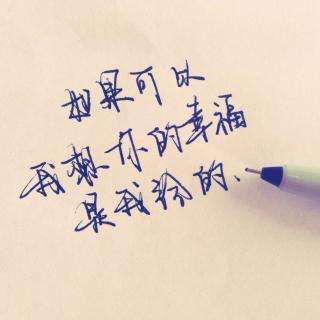 如果可以
我想你的幸福
是我给的、